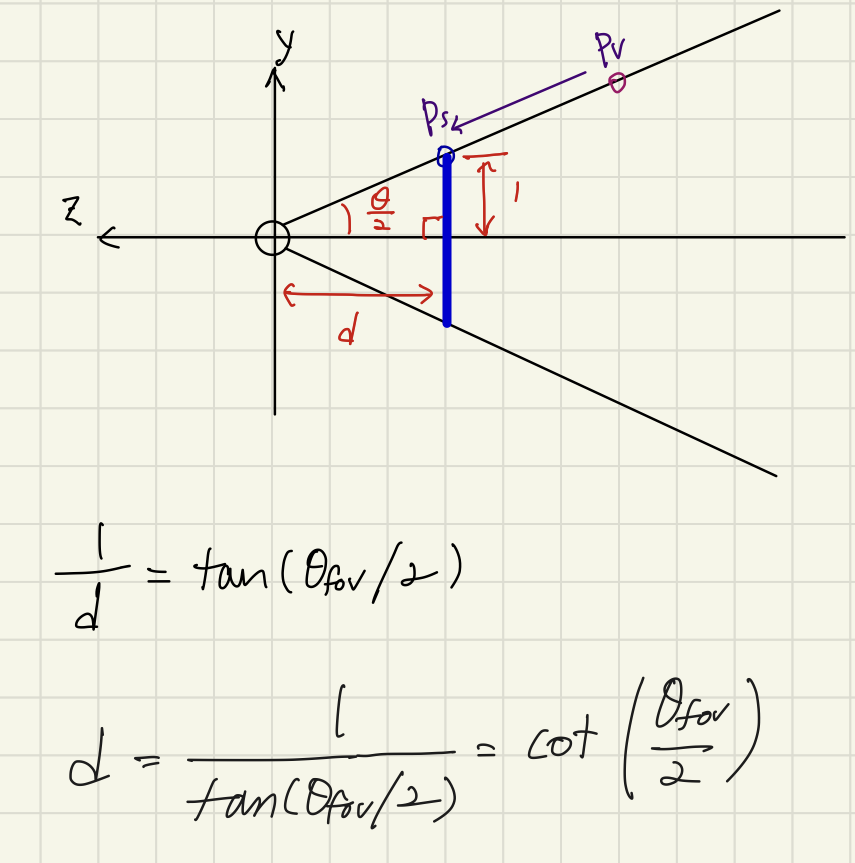 y
Pv
Ps
z
θ/2
1
d
1/d = tan(θfov/2)
d = 1/tan(θfov/2) = cot(θfov/2)